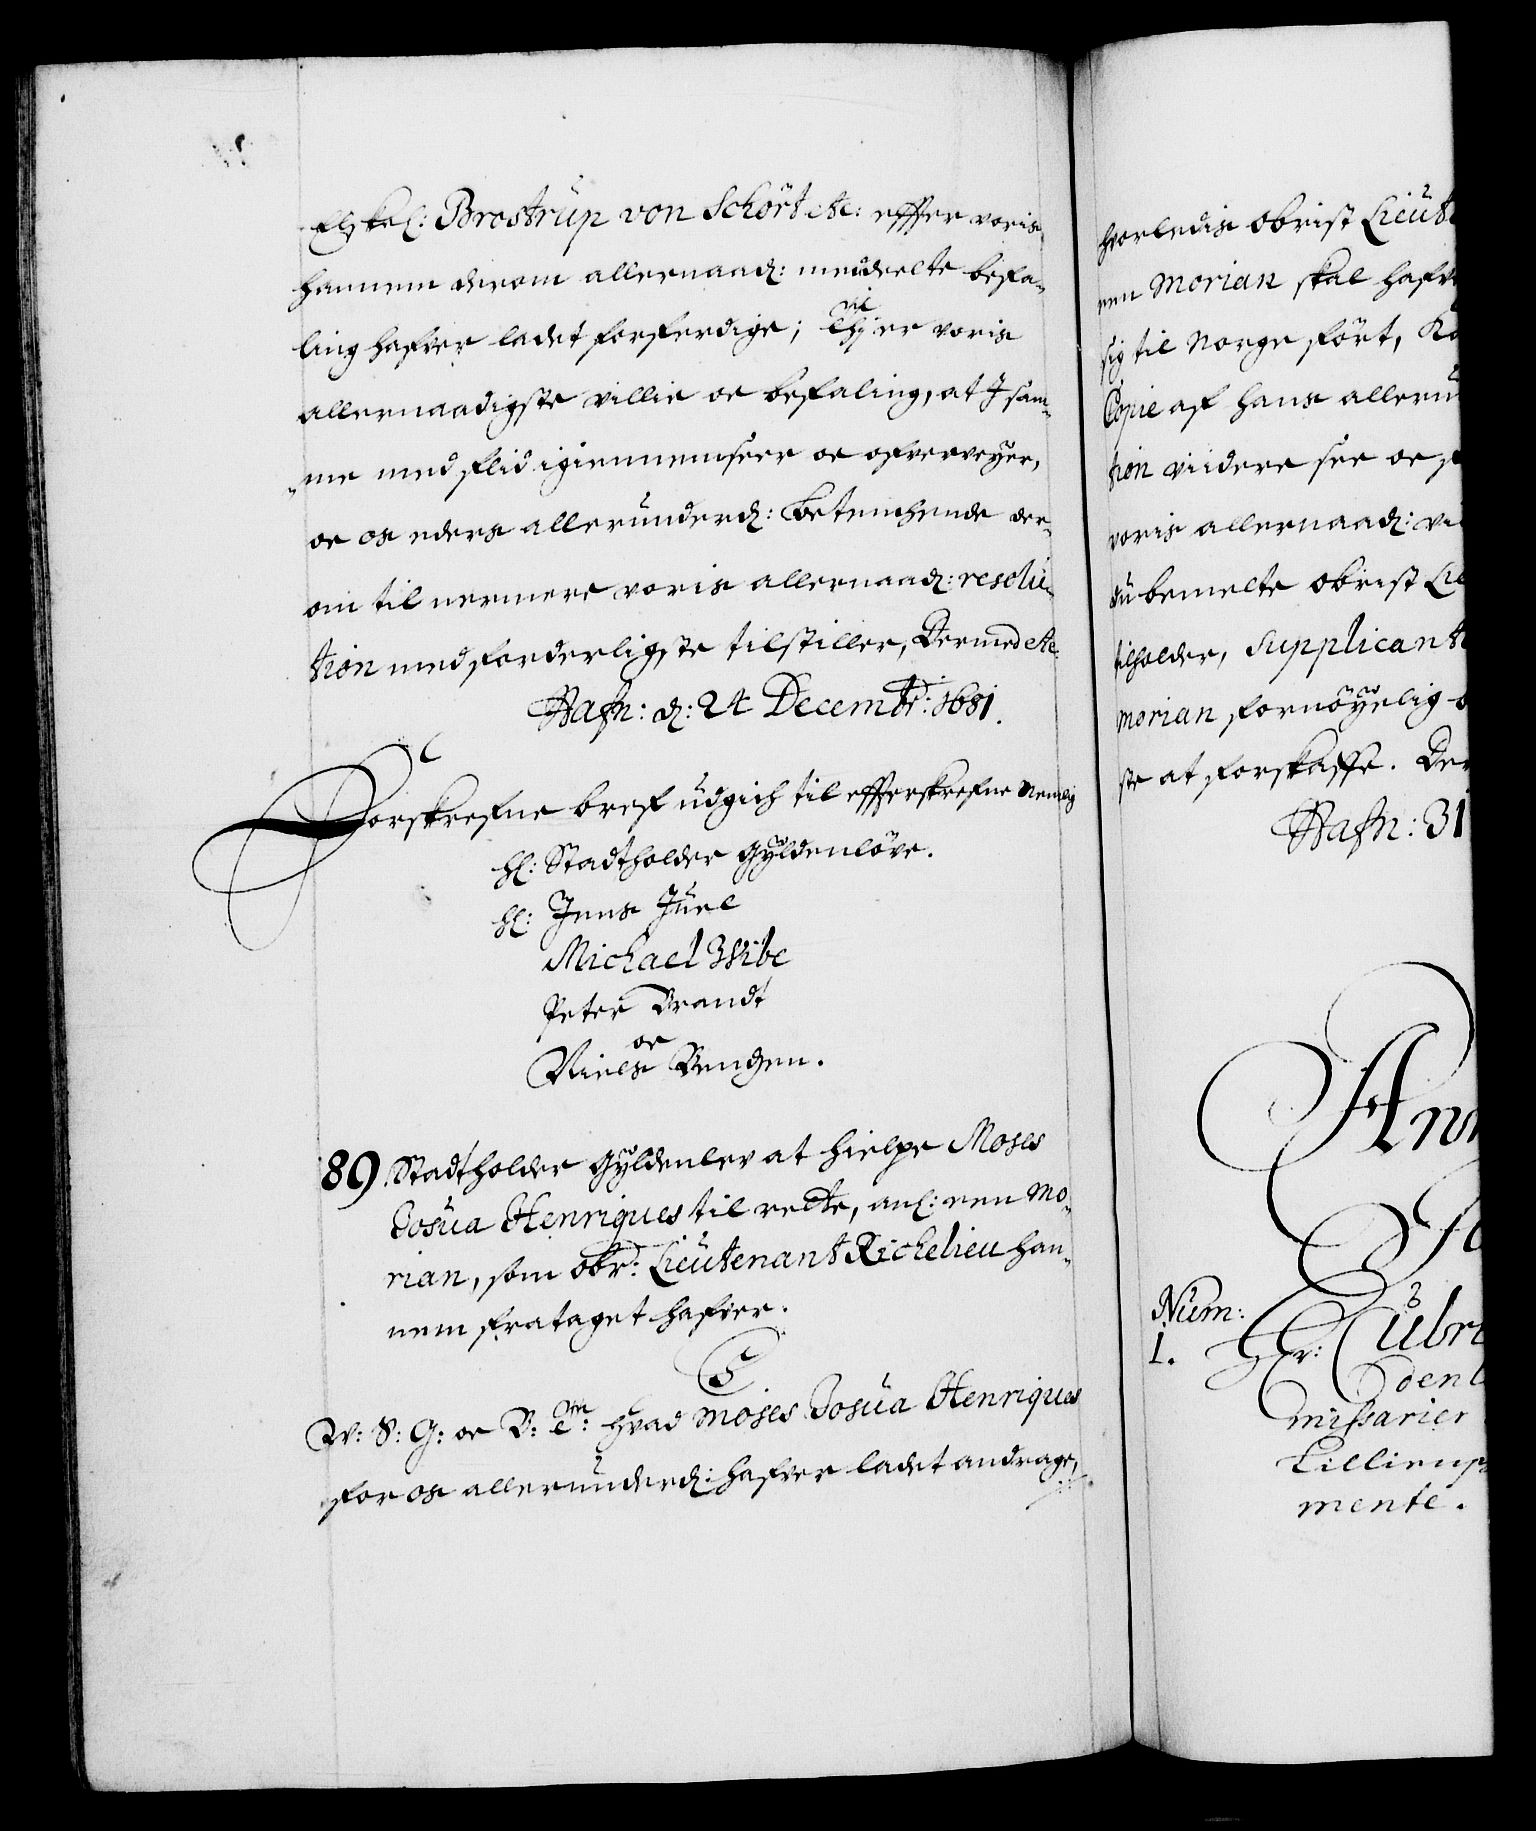 Elskel: Brostrup von Schört etc: effter voris
hannem derom allernaad: meddelte befa-
ling hafver ladet forferdige; thi er voris
allernaadigste villie oc befaling, at I sam-
me med flid igiennemseer oc ofverveyer,
oc os eders allerunderd: betenchende der-
om til nermere voris allernaad: resolu-
tion med forderligste tilstiller, Dermed etc:
Hafn: d: 24 Decembr: 1681.
Forskrefne bref udgich til effterskrefne Nemlig
Hl: Stadtholder Gyldenlöve.
Hl: Jens Juel
Michael Wibe
Peter Brandt
oc
Niels Bendzen.
89. Stadtholder Gyldenlev at hielpe Moses
Josua Henriques til rette, anl: een mo-
rian, som obr: Lieutenant Richelieu han-
nem frataget hafver.
C5
W: S: G: oc B: etm: Hvad Moses Josua Henriques
for os allerunderd: hafver ladet andrage,
hvorledis obrist Lieut
een Morian skal hafv
sig til Norge fört,
Copie af hans alleru
tion viidere see oc
voris allernaad: vi
du bemelte obrist Lie
tilholder, Supplicant
morian fornöyelig
ste at forskaffe. Der
Hafn: 31
Num:
1. Hr: Cubr
den
missarier
Lilliensk
mente.